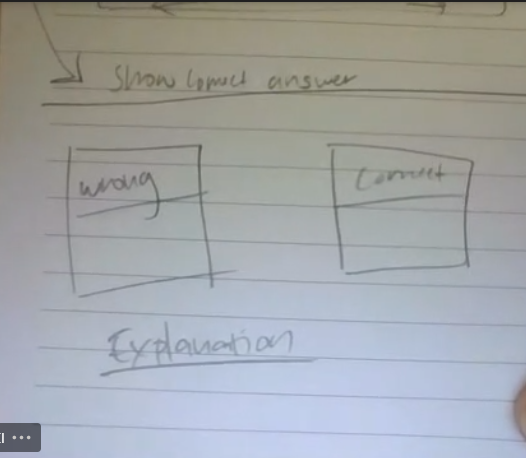 Show correct answer
wrong
correct
Explanation